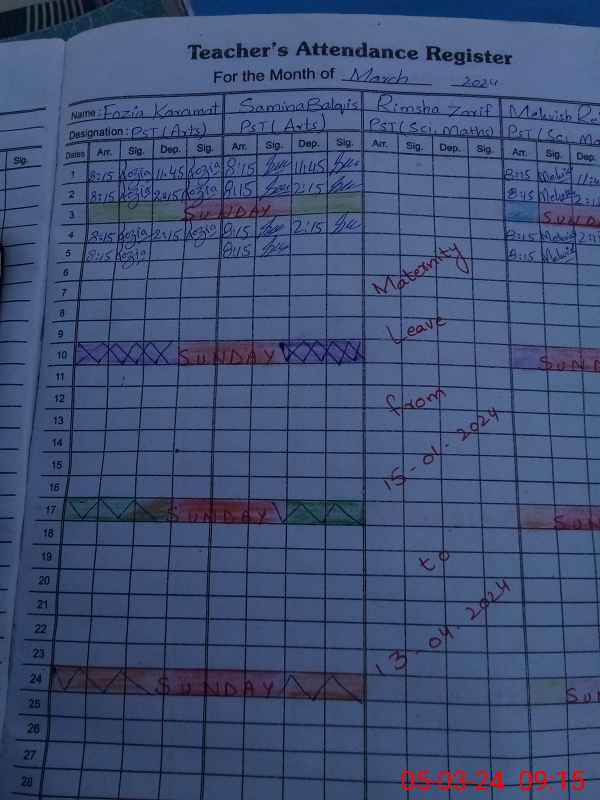 Teacher's Attendance Register
For the Month of March 2024
Name: Fozia Karamat Samina Balqis Rimsha Zarif Mehwish
Designation: PST (Arts) PST (Arts) PST (Sci, Maths) PST (Sci, Ma
Sig. Dates Arr. Sig. Dep. Sig. Arr. Sig. Dep. Sig. Arr. Sig. Dep. Sig. Arr. Sig. Dep.
1 8:15 Fozia 11:45 Fozia 8:15 11:45 8:15 Mehwish 11:4
2 8:15 Fozia 2:15 Fozia 8:15 2:15 8:15 Mehwish 2:1
3 SUNDAY SUND
4 8:15 Fozia 2:15 Fozia 8:15 2:15 8:15 Mehwish 2:1
5 8:15 Fozia 8:15 8:15 Mehwish
6 Maternity
7
8
9 Leave
10 SUNDAY SUND
11
12 from
13
14
15 15-01-2024
16
17 SUNDAY SUN
18
19 to
20
21
22
23 13-04-2024
24 SUNDAY SUN
25
26
27
28
05-03-24 09:15